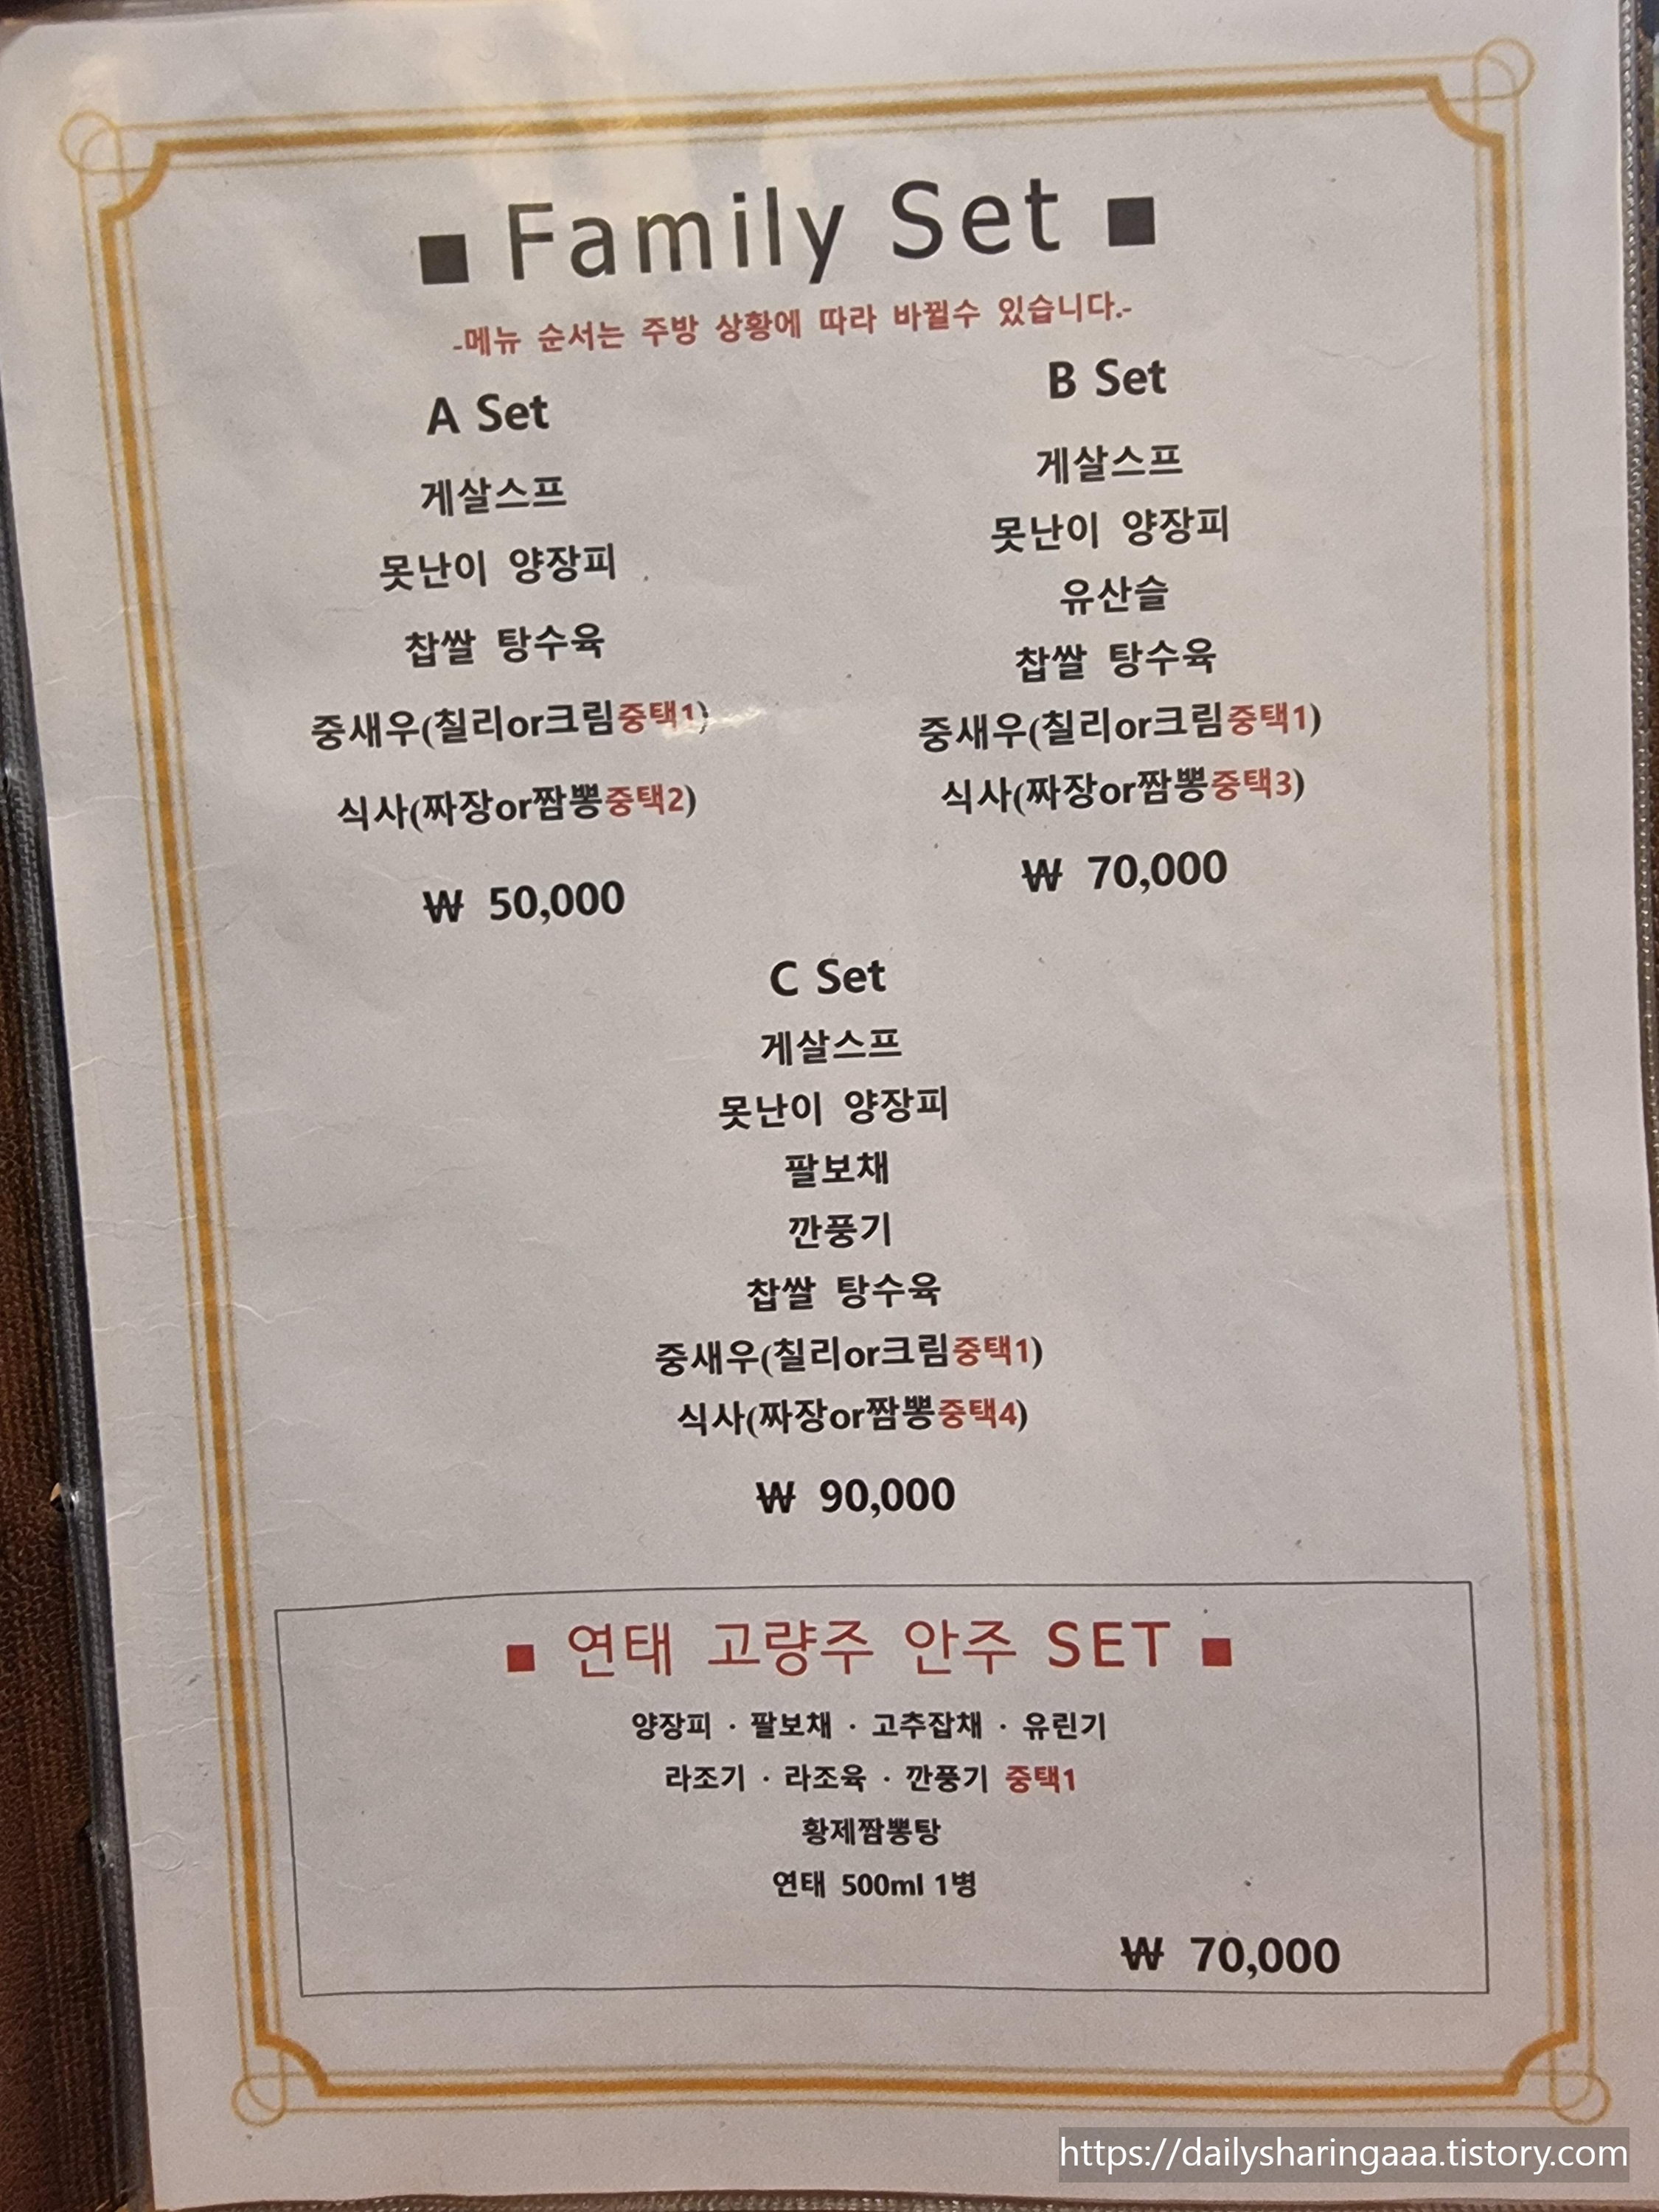 ■ Family Set ■
-메뉴 순서는 주방 상황에 따라 바뀔수 있습니다.-
A Set
게살스프
못난이 양장피
찹쌀 탕수육
중새우(칠리or크림중택1)
식사(짜장or짬뽕중택2)
₩ 50,000
B Set
게살스프
못난이 양장피
유산슬
찹쌀 탕수육
중새우(칠리or크림중택1)
식사(짜장or짬뽕중택3)
₩ 70,000
C Set
게살스프
못난이 양장피
팔보채
깐풍기
찹쌀 탕수육
중새우(칠리or크림중택1)
식사(짜장or짬뽕중택4)
₩ 90,000
■ 연태 고량주 안주 SET ■
양장피 · 팔보채 · 고추잡채 · 유린기
라조기 · 라조육 · 깐풍기 중택1
황제짬뽕탕
연태 500ml 1병
₩ 70,000
https://dailysharingaaa.tistory.com